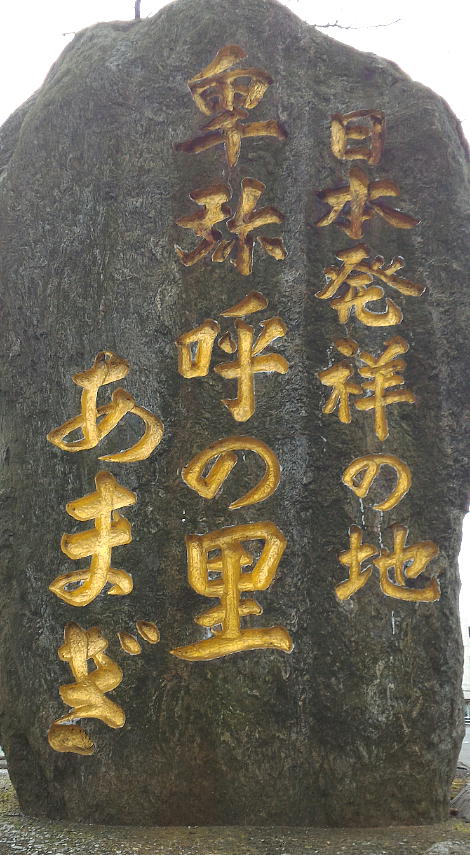 日本発祥の地
卑弥呼の里
あまぎ